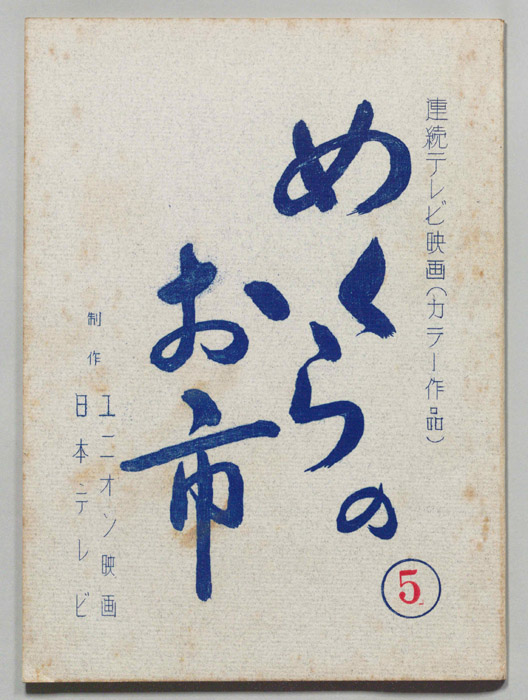 連続テレビ映画(カラー作品)
めくらの
お市
5
制作
ユニオン映画
日本テレビ